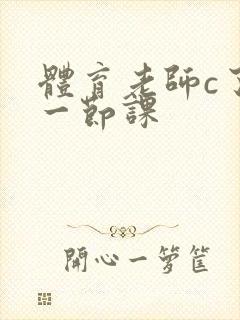 體育老師c了
一節課
開心一籮筐